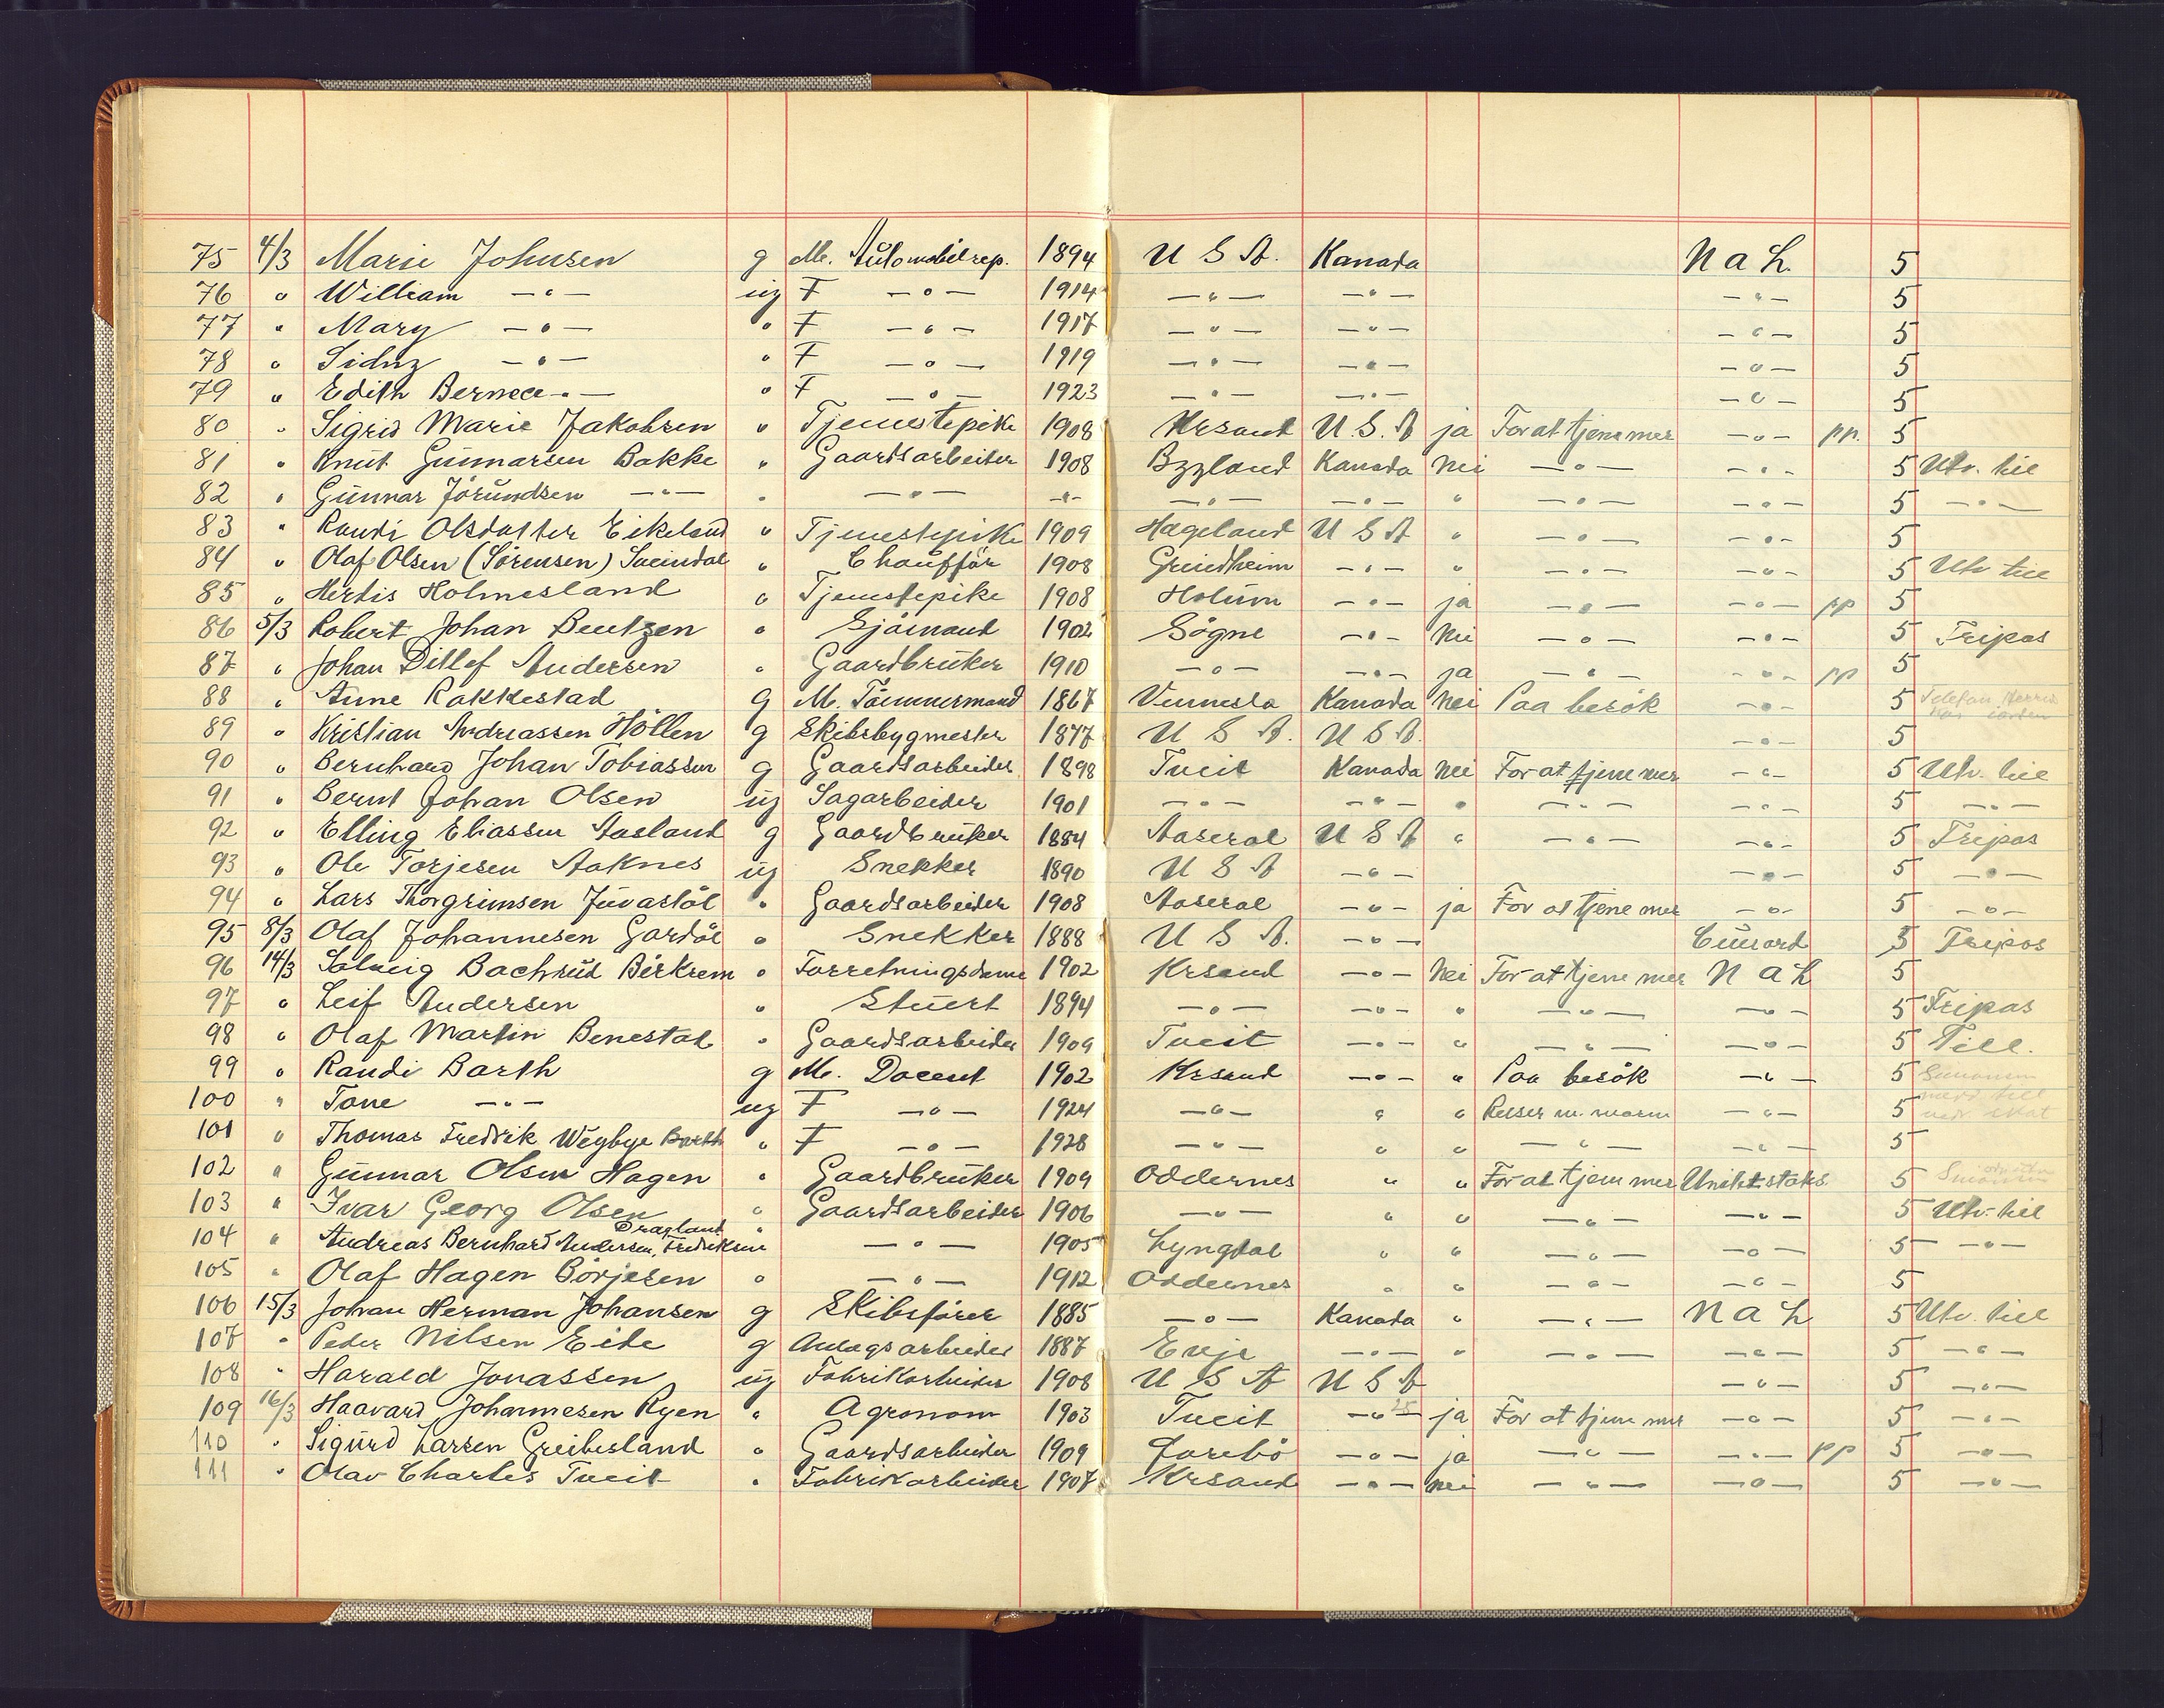 75 4/3 Marie Johnsen g M. Automobilrep. 1894 U S A. Kanada N a L. 5
76 " William —"— ug F —"— 1914 —"— —"— —"— 5
77 " Mary —"— " F —"— 1917 —"— —"— —"— 5
78 " Sidny —"— " F —"— 1919 —"— —"— —"— 5
79 " Edith Bernece —"— " F —"— 1923 —"— —"— —"— 5
80 " Sigrid Marie Jakobsen " Tjenestepike 1908 Krsand U.S.A ja For at tjene mer —"— pp. 5
81 " Knut Gunnarsen Bakke " Gaardsarbeider 1908 Bygland Kanada nei —"— —"— 5 Utv. till
82 " Gunnar Jörundsen —"— " —"— —"— —"— —"— " —"— —"— 5 —"—
83 " Randi Olsdatter Eikeland " Tjenestepike 1909 Hægeland U S A " —"— —"— 5
84 " Olaf Olsen (Sörensen) Sveindal " Chaufför 1908 Grindheim —"— " —"— —"— 5 Utv till
85 " Herdis Holmesland " Tjenestepike 1908 Holum —"— ja —"— —"— pp 5
86 5/3 Robert Johan Bentzen " Sjömand 1902 Sögne —"— nei —"— —"— 5 Tripas
87 " Johan Ditlef Andersen " Gaardbruker 1910 —"— —"— ja —"— —"— pp 5
88 " Anne Rakkestad g M. Tömmermand 1867 Vennesla Kanada nei Paa besök —"— 5 Telefon
89 " Kristian Andreassen Höllen g Skibsbygmester 1877 U S A. U S A. —"— 5
90 " Bernhard Johan Tobiassen g Gaardsarbeider 1898 Tveit Kanada nei For at tjene mer —"— 5 Utv. till
91 " Bernt Johan Olsen ug Sagarbeider 1901 —"— —"— " —"— —"— 5 —"—
92 " Elling Eliassen Aasland g Gaardbruker 1884 Aaseral U S A " —"— —"— 5 Tripas
93 " Ole Torjesen Aaknes ug Snekker 1890 U S A —"— —"— 5 —"—
94 " Lars Thorgrimsen Juvastöl " Gaardsarbeider 1908 Aaseral —"— ja For at tjene mer —"— 5 —"—
95 8/3 Olaf Johannesen Gardöl " Snekker 1888 U S A. —"— Cunard 5 Tripos
96 14/3 Solveig Bachrud Birkrem " Forretningsdame 1902 Krsand —"— nei For at tjene mer N a L 5
97 " Leif Andersen " Stuert 1894 —"— —"— " —"— —"— 5 Tripas
98 " Olaf Martin Benestad " Gaardsarbeider 1909 Tveit —"— " —"— —"— 5 Till.
99 " Randi Barth g M. Docent 1902 Krsand —"— " Paa besök —"— 5
100 " Tone —"— ug F —"— 1924 —"— " " Reiser m. mann —"— 5
101 " Thomas Fredrik Weybye Barth " F —"— 1928 —"— " " —"— —"— 5
102 " Gunnar Olsen Hagen " Gaardbruker 1909 Oddernes " " For at tjene mer Unit. stats. 5
103 " Ivar Georg Olsen " Gaardsarbeider 1906 —"— " " —"— —"— 5 Utv. till
104 " Andreas Bernhard Andersen, Fredriksen Dragland " —"— 1905 Lyngdal " " —"— —"— 5 —"—
105 " Olaf Hagen Börjesen " —"— 1912 Oddernes " " —"— —"— 5
106 15/3 Johan Herman Johansen g Skibsförer 1885 —"— Kanada " —"— N a L 5 Utv. till
107 " Peder Nilsen Eide g Anlægsarbeider 1887 Evje —"— " —"— —"— 5 —"—
108 " Harald Jonassen ug Fabrikarbeider 1908 U S A U S A —"— 5 —"—
109 16/3 Haavard Johannesen Ryen " Agronom 1903 Tveit —"— ja For at tjene mer —"— 5 —"—
110 " Sigurd Larsen Greibesland " Gaardsarbeider 1909 Iveland —"— ja —"— —"— pp 5 —"—
111 " Olav Charles Tveit " Fabrikarbeider 1907 Krsand —"— nei —"— —"— 5 —"—